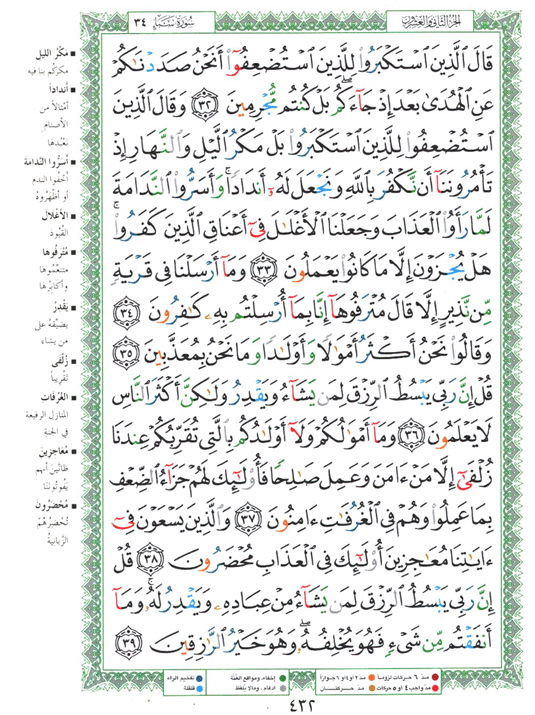 الجزء الثاني والعشرون
سورة سبإ ٣٤
قَالَ الَّذِينَ اسْتَكْبَرُوا لِلَّذِينَ اسْتُضْعِفُوٓا أَنَحْنُ صَدَدْنَٰكُمْ
عَنِ الْهُدَىٰ بَعْدَ إِذْ جَآءَكُم ۖ بَلْ كُنتُم مُّجْرِمِينَ ٣٢ وَقَالَ الَّذِينَ
اسْتُضْعِفُوا لِلَّذِينَ اسْتَكْبَرُوا بَلْ مَكْرُ الَّيْلِ وَالنَّهَارِ إِذْ
تَأْمُرُونَنَآ أَن نَّكْفُرَ بِاللَّهِ وَنَجْعَلَ لَهُۥٓ أَندَادًا ۚ وَأَسَرُّوا النَّدَامَةَ
لَمَّا رَأَوُا الْعَذَابَ وَجَعَلْنَا الْأَغْلَٰلَ فِىٓ أَعْنَاقِ الَّذِينَ كَفَرُوا ۚ
هَلْ يُجْزَوْنَ إِلَّا مَا كَانُوا يَعْمَلُونَ ٣٣ وَمَآ أَرْسَلْنَا فِى قَرْيَةٍ
مِّن نَّذِيرٍ إِلَّا قَالَ مُتْرَفُوهَآ إِنَّا بِمَآ أُرْسِلْتُم بِهِۦ كَٰفِرُونَ ٣٤
وَقَالُوا نَحْنُ أَكْثَرُ أَمْوَٰلًا وَأَوْلَٰدًا وَمَا نَحْنُ بِمُعَذَّبِينَ ٣٥
قُلْ إِنَّ رَبِّى يَبْسُطُ الرِّزْقَ لِمَن يَشَآءُ وَيَقْدِرُ وَلَٰكِنَّ أَكْثَرَ النَّاسِ
لَا يَعْلَمُونَ ٣٦ وَمَآ أَمْوَٰلُكُمْ وَلَآ أَوْلَٰدُكُم بِالَّتِى تُقَرِّبُكُمْ عِندَنَا
زُلْفَىٰٓ إِلَّا مَنْ ءَامَنَ وَعَمِلَ صَٰلِحًا فَأُولَٰٓئِكَ لَهُمْ جَزَآءُ الضِّعْفِ
بِمَا عَمِلُوا وَهُمْ فِى الْغُرُفَٰتِ ءَامِنُونَ ٣٧ وَالَّذِينَ يَسْعَوْنَ فِىٓ
ءَايَٰتِنَا مُعَٰجِزِينَ أُولَٰٓئِكَ فِى الْعَذَابِ مُحْضَرُونَ ٣٨ قُلْ
إِنَّ رَبِّى يَبْسُطُ الرِّزْقَ لِمَن يَشَآءُ مِنْ عِبَادِهِۦ وَيَقْدِرُ لَهُۥ ۚ وَمَآ
أَنفَقْتُم مِّن شَىْءٍ فَهُوَ يُخْلِفُهُۥ ۖ وَهُوَ خَيْرُ الرَّٰزِقِينَ ٣٩
■ مكْرُ الليل
مكركم بنا فيه
■ أنداداً
أمثالاً من
الأصنام
نعبُدها
■ أسرُّوا النَّدامة
أخفَوا الندم
أو أظهَرُوهُ
■ الأغلال
القُيُود
■ مُترفُوها
مُتنعّمُوها
وأكابِرُها
■ يقدِرُ
يضيّقه على
من يشاء
■ زُلْفى
تقريباً
■ الغُرُفات
المنازل الرفيعة
في الجنة
■ مُعاجزين
ظانّين أنهم
يفوتوننا
■ مُحضَرُون
تُحضِرُهُمُ
الزّبانيةُ
مدّ ٦ حركات لزوماً
مدّ ٢ أو ٤ أو ٦ جوازاً
إخفاء، ومواقع الغنّة
تفخيم الراء
مدّ واجب ٤ أو ٥ حركات
مدّ حركتان
ادغام، ومالا يُلفظ
قلقلة
٤٣٢